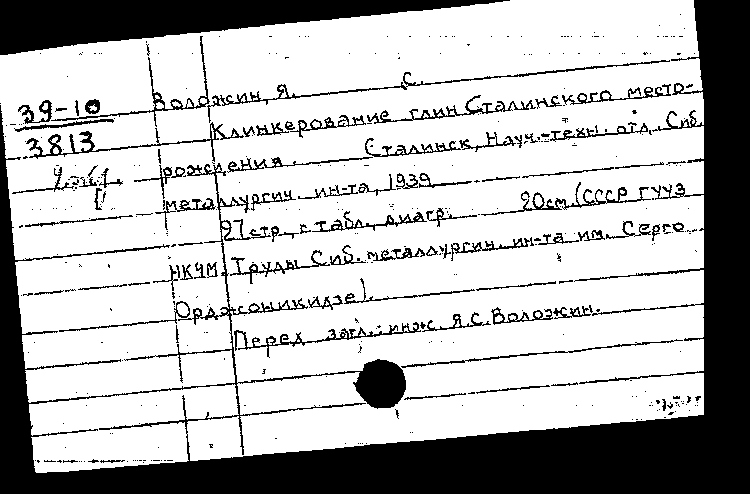 39-10
3813
2 экз.
Воложин, Я. С.
Клинкерование глин Сталинского место-
рождения. Сталинск, Науч.-техн. отд. Сиб.
металлургич. ин-та, 1939
27 стр., с табл., диагр. 20см. (СССР ГУУЗ
НКЧМ. Труды Сиб. металлургич. ин-та им. Серго
Орджоникидзе).
Перед загл.: инж. Я.С. Воложин.